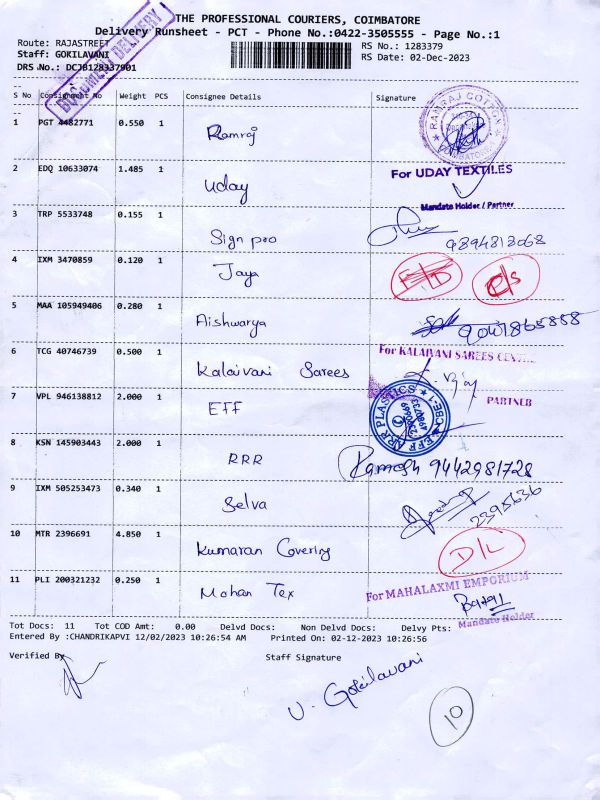 THE PROFESSIONAL COURIERS, COIMBATORE
Delivery Runsheet - PCT - Phone No.:0422-3505555 - Page No.:1
Route: RAJASTREET
RS No.: 1283379
Staff: GOKILAVANI
RS Date: 02-Dec-2023
DRS No.: DCJB128337901
DOCUMENT DELIVERY
S No Consignment No Weight PCS Consignee Details Signature
1 PGT 4482771 0.550 1 Ramraj
RAMRAJ COTTON
COIMBATORE
2 EDQ 10633074 1.485 1 Uday
For UDAY TEXTILES
Mandate Holder / Partner
3 TRP 5533748 0.155 1 Sign pro 9894813068
4 IXM 3470859 0.120 1 Jaya
5 MAA 105949406 0.280 1 Aishwarya
6 TCG 40746739 0.500 1 Kalaivani Sarees
For KALAIVANI SAREES
PARTNER
7 VPL 946138812 2.000 1 EFF
EFF ARR PLASTICS CBE-1
8 KSN 145903443 2.000 1 RRR Ramesh 9442981728
9 IXM 505253473 0.340 1 Selva 2395636
10 MTR 2396691 4.850 1 Kumaran Covering D/L
11 PLI 200321232 0.250 1 Mohan Tex
For MAHALAXMI EMPORIUM
Mandate Holder
Tot Docs: 11 Tot COD Amt: 0.00 Delvd Docs: Non Delvd Docs: Delvy Pts:
Entered By :CHANDRIKAPVI 12/02/2023 10:26:54 AM Printed On: 02-12-2023 10:26:56
Verified By Staff Signature
V. Gokilavani
10